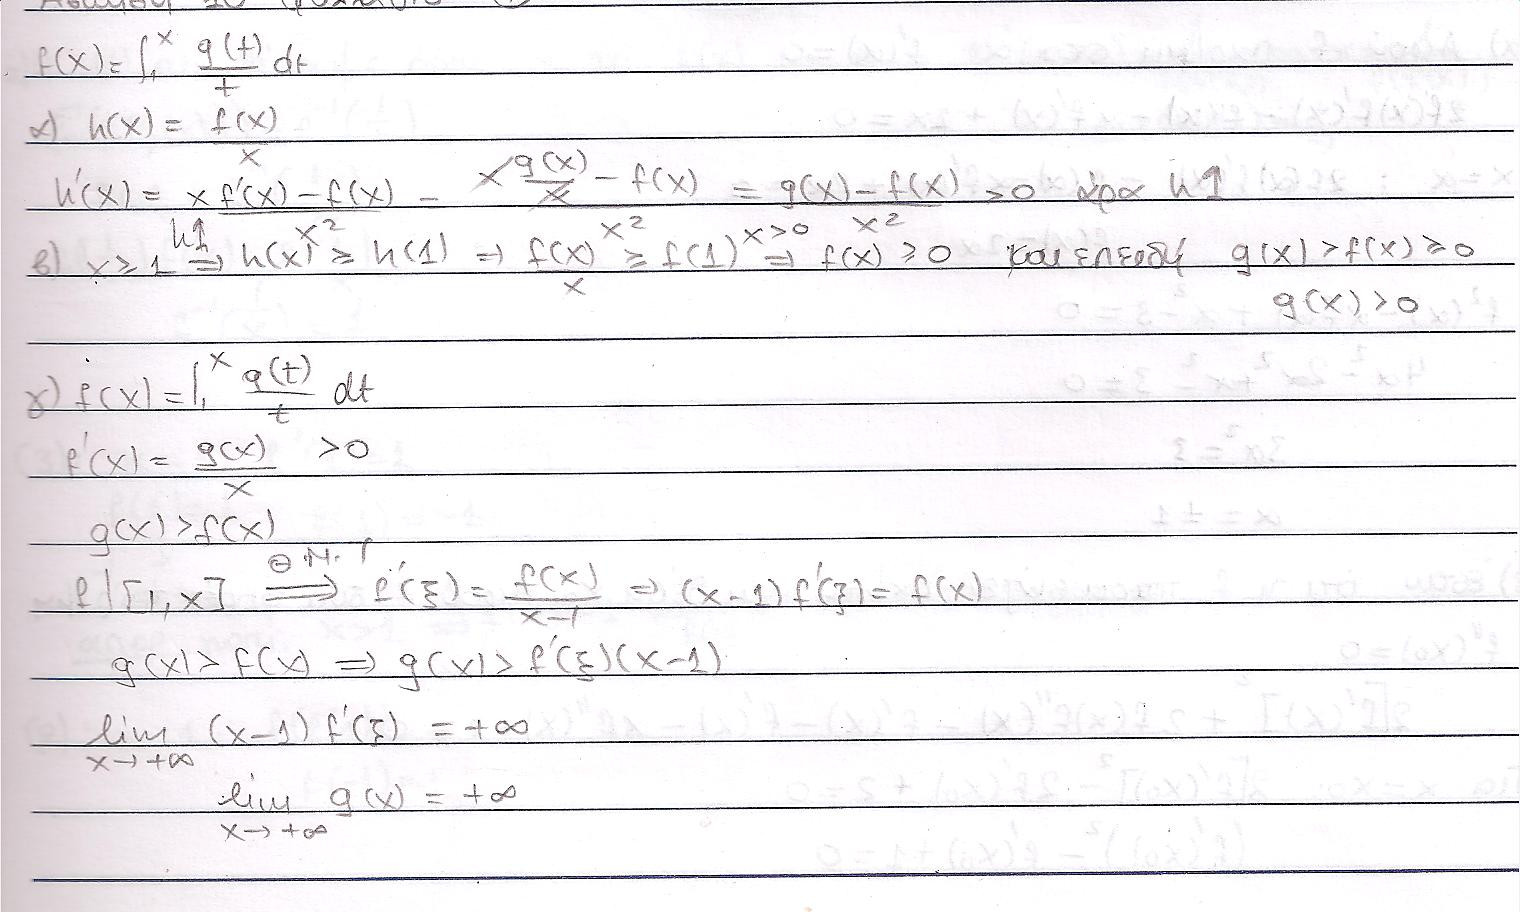 f(x) = ∫₁ˣ g(t)/t dt
α) h(x) = f(x)/x
h'(x) = (x f'(x) - f(x))/x² = (x g(x)/x - f(x))/x² = (g(x) - f(x))/x² > 0 άρα h↑
β) x ≥ 1 ⇒(h↑) h(x) ≥ h(1) ⇒ f(x)/x ≥ f(1) ⇒(x>0) f(x) ≥ 0 και επειδή g(x) > f(x) ≥ 0
g(x) > 0
γ) f(x) = ∫₁ˣ g(t)/t dt
f'(x) = g(x)/x > 0
g(x) > f(x)
f | [1, x] ⇒(Θ.Μ.Τ) f'(ξ) = f(x)/(x-1) ⇒ (x-1) f'(ξ) = f(x)
g(x) > f(x) ⇒ g(x) > f'(ξ)(x-1)
lim x→+∞ (x-1) f'(ξ) = +∞
lim x→+∞ g(x) = +∞